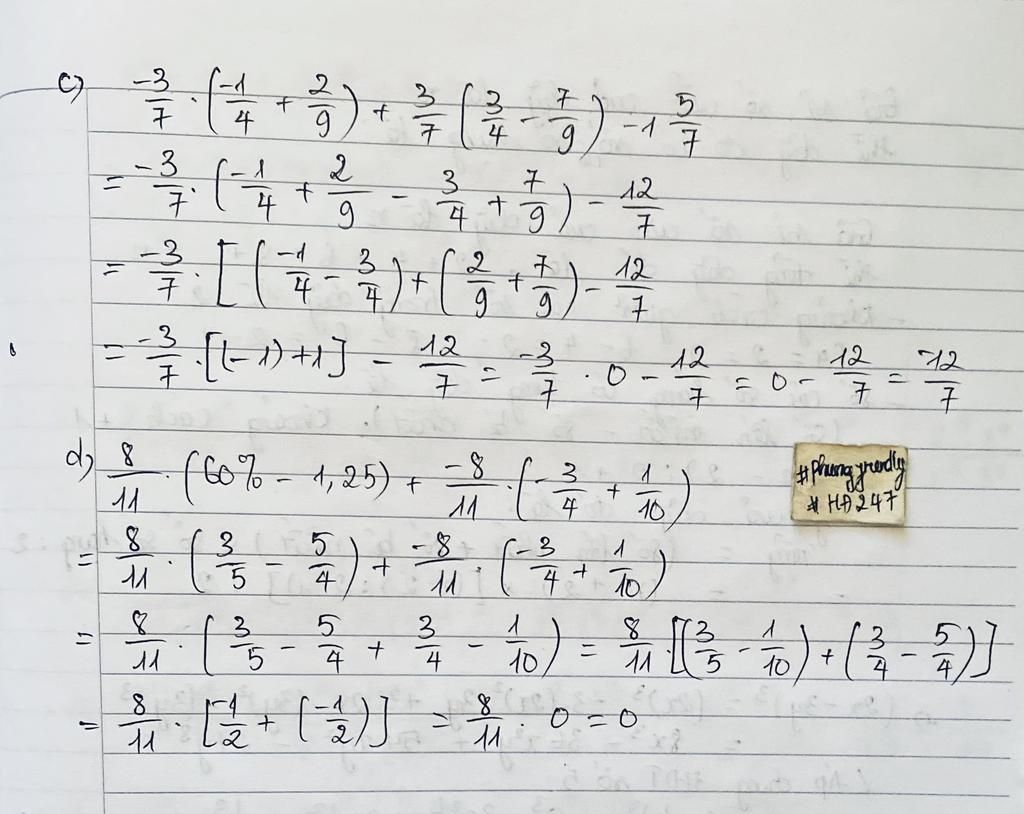 c) -3/7 · (-1/4 + 2/9) + 3/7 (3/4 - 7/9) - 1 5/7
= -3/7 · (-1/4 + 2/9 - 3/4 + 7/9) - 12/7
= -3/7 · [(-1/4 - 3/4) + (2/9 + 7/9) - 12/7
= -3/7 · [(-1) + 1] - 12/7 = -3/7 · 0 - 12/7 = 0 - 12/7 = -12/7
d) 8/11 · (60% - 1,25) + -8/11 · (-3/4 + 1/10)
#phunggyendly
#HA247
= 8/11 · (3/5 - 5/4) + -8/11 · (-3/4 + 1/10)
= 8/11 · (3/5 - 5/4 + 3/4 - 1/10) = 8/11 · [(3/5 - 1/10) + (3/4 - 5/4)]
= 8/11 · [-1/2 + (-1/2)] = 8/11 · 0 = 0